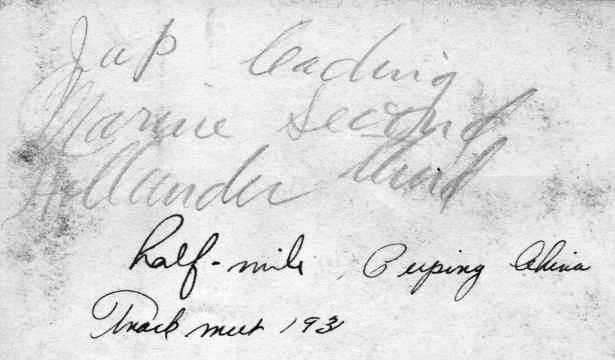 Jap leading
Marine second
Hollander third
half-mile Peiping China
Track meet 193